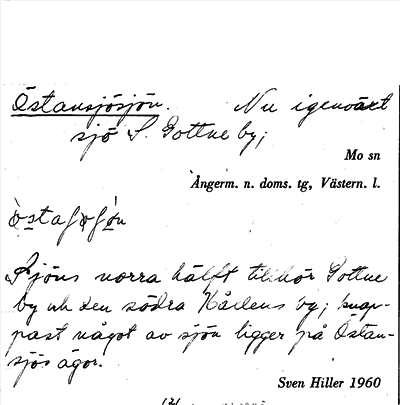 Östansjösjön. Nu igenväxt
sjö S. Gottne by;
Mo sn
Ångerm. n. doms. tg, Västern. l.
Sjöns norra hälft tillhör Gottne
by och den södra Kådens by; knap-
past något av sjön ligger på Östan-
sjös ägor.
Sven Hiller 1960